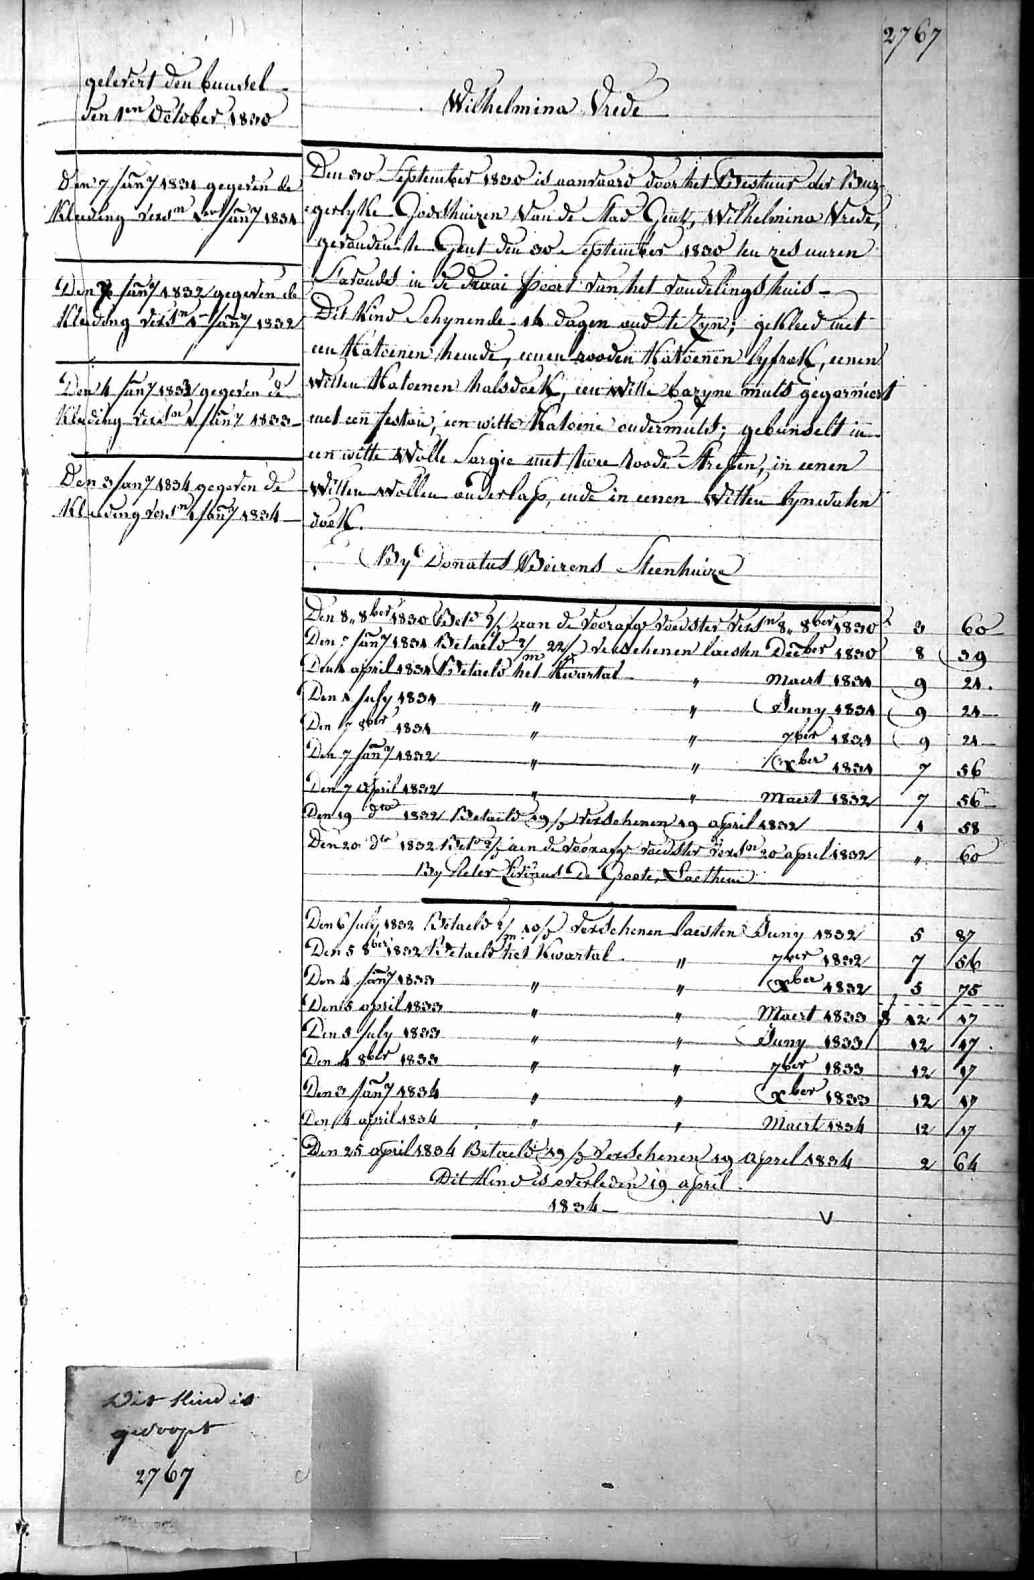 2767
gelevert den bunsel
den 1en October 1830
Wilhelmina Vrede
Den 7 Jany 1831 gegeven de
Kleeding versn 1er Jany 1831
Den 7 Jany 1832 gegeven de
Kleeding versn 1 Jany 1832
Den 4 Jany 1833 gegeven de
Kleeding versn 1 Jany 1833
Den 3 Jany 1834 gegeven de
Kleeding versn 1 Jany 1834
Den 30 September 1830 is aanvaard door het Bestuur der Burg-
gerlyke Godshuizen van de Stad Gent, Wilhelmina Vrede,
gevonden te Gent den 30 September 1830 ten zes uuren
S'avonds in de draai poort van het vondelingshuis
Dit Kind Schynende 14 dagen oud te zyn; gekleed met
een Katoenen hemde, eenen rooden Katoenen lyfrok, eenen
Witten Katoenen halsdoek, een Witte bazyne muts gegarniert
met een feston, een witte Katoene ondermuts; gebunselt in
een witte Wolle Sargie met twee roode Strepen, in eenen
Witten Wollen onderlap, ende in eenen Witten lynwaten
doek.
By Donatus Beirens Steenhuize
Den 8,, 8ber 1830 Beto aan de voorafge voedster versn 8,, 8ber 1830 3 60
Den 7 Jany 1831 Betaeld 22/ verschenen laesten Decber 1830 8 39
Den 4 april 1831 Betaeld het Kwartal " Maert 1831 9 24
Den 1 July 1831 " " Juny 1831 9 24
Den 7 8ber 1831 " " 7ber 1831 9 24
Den 7 Jany 1832 " " xber 1831 7 56
Den 7 april 1832 " " Maert 1832 7 56
Den 19 dto 1832 Betaeld 19/ verschenen 19 april 1832 1 58
Den 20 dto 1832 Beto aen de voorafge voedster versn 20 april 1832 " 60
By Pieter Livinus De Groote, Laethem
Den 6 July 1832 Betaeld 10/ verschenen laesten Juny 1832 5 87
Den 5 8ber 1832 Betaeld het Kwartal " 7ber 1832 7 56
Den 4 Jany 1833 " " xber 1832 5 75
Den 5 april 1833 " " Maert 1833 12 17
Den 5 July 1833 " " Juny 1833 12 17
Den 4 8ber 1833 " " 7ber 1833 12 17
Den 3 Jany 1834 " " xber 1833 12 17
Den 4 april 1834 " " Maert 1834 12 17
Den 25 april 1834 Betaeld 19/ verschenen 19 april 1834 2 64
Dit Kind is overleden 19 april
1834
Dit Kind is
gedoopt
2767